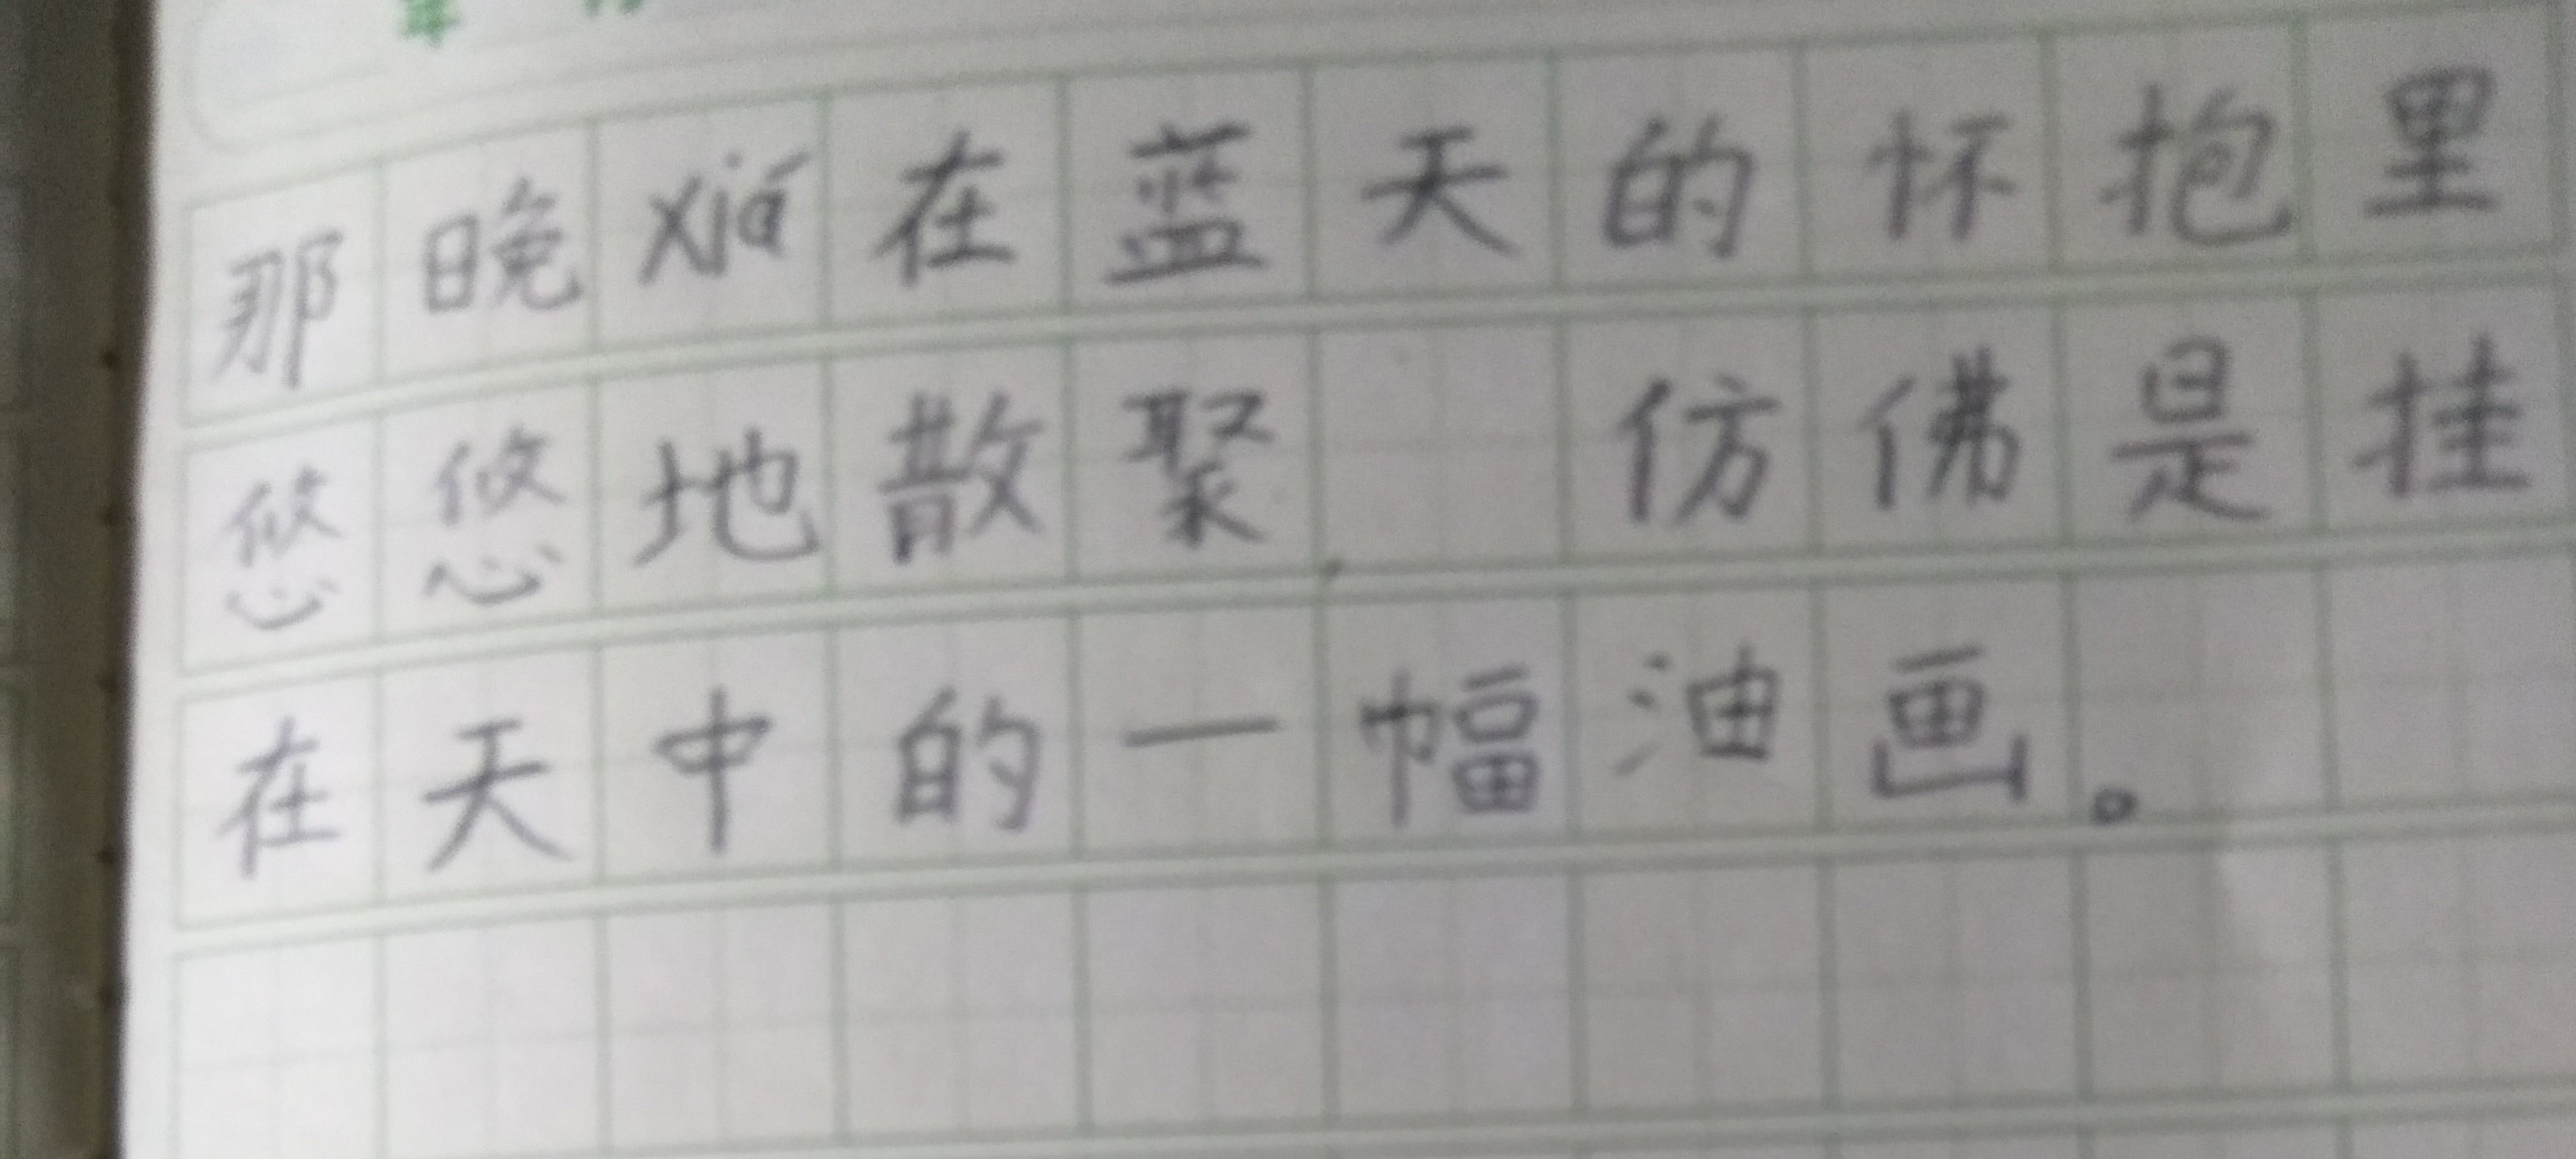 那晚xiá在蓝天的怀抱里
悠悠地散聚，仿佛是挂
在天中的一幅油画。